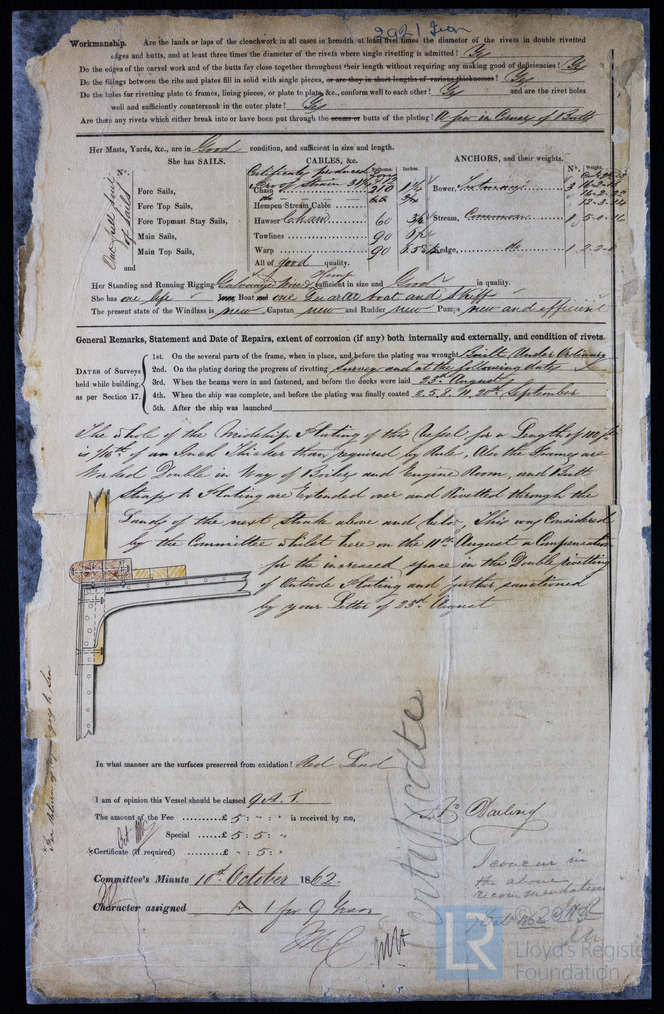 2921 Iron
Workmanship. Are the lands or laps of the clenchwork in all cases in breadth, at least five times the diameter of the rivets in double rivetted
edges and butts, and at least three times the diameter of the rivets where single rivetting is admitted? Yes
Do the edges of the carvel work and of the butts fay close together throughout their length without requiring any making good of deficiencies? Yes
Do the fillings between the ribs and plates fill in solid with single pieces, or are they in short lengths of various thicknesses? Yes
Do the holes for rivetting plate to frames, lining pieces, or plate to plate, &c., conform well to each other? Yes and are the rivet holes
well and sufficiently countersunk in the outer plate? Yes
Are there any rivets which either break into or have been put through the seams or butts of the plating? A few in Corners of Butts
Her Masts, Yards, &c., are in Good condition, and sufficient in size and length.
She has SAILS. CABLES, &c. ANCHORS, and their weights.
N°. Certificate produced Fathoms. Inches. N°s. Weight.
Fore Sails, Chain 210 Bower,
Fore Top Sails, Hempen Stream Cable
Fore Topmast Stay Sails, Hawser Chain 60 Stream, Common 1
Main Sails, Towlines 90
Main Top Sails, Warp 90 Kedge, do 1
and All of good quality.
One full suit of sails
Her Standing and Running Rigging Galvanized wire & Hemp sufficient in size and Good in quality.
She has one life Long Boat and one Quarter boat and Skiff
The present state of the Windlass is new Capstan new and Rudder new Pumps new and efficient
General Remarks, Statement and Date of Repairs, extent of corrosion (if any) both internally and externally, and condition of rivets.
DATES of Surveys held while building, as per Section 17.
1st. On the several parts of the frame, when in place, and before the plating was wrought Built Under Ordinary
2nd. On the plating during the progress of rivetting Survey and at the following dates
3rd. When the beams were in and fastened, and before the decks were laid 23rd August
4th. When the ship was complete, and before the plating was finally coated 2. 5. 8. 11. 20th September
5th. After the ship was launched
The whole of the Midship Plating of this Vessel for a Length of 100 ft
is 1/16th of an Inch thicker than required by Rule, Also the Frames are
Worked Double in Way of Boilers and Engine Room, and Butt
Straps to Plating are Extended over and Rivetted through the
Lands of the next Strake above and below, This was Considered
by the Committee whilst here on the 11th August a Compensation
for the increased space in the Double rivetting
of Outside Plating and further sanctioned
by your Letter of 23rd August
In what manner are the surfaces preserved from oxidation? Red Lead
I am of opinion this Vessel should be classed 9 A. 1.
The amount of the Fee ......£ 5 : " : " is received by me,
Special ......£ 5 : 5 : "
Certificate (if required) .........£ " : 5 : "
Darling
Certificate
I concur in
the above
recommendation
Committee's Minute 10th October 1862.
Character assigned A 1 for 9 Years
LR
Lloyd's Register
Foundation